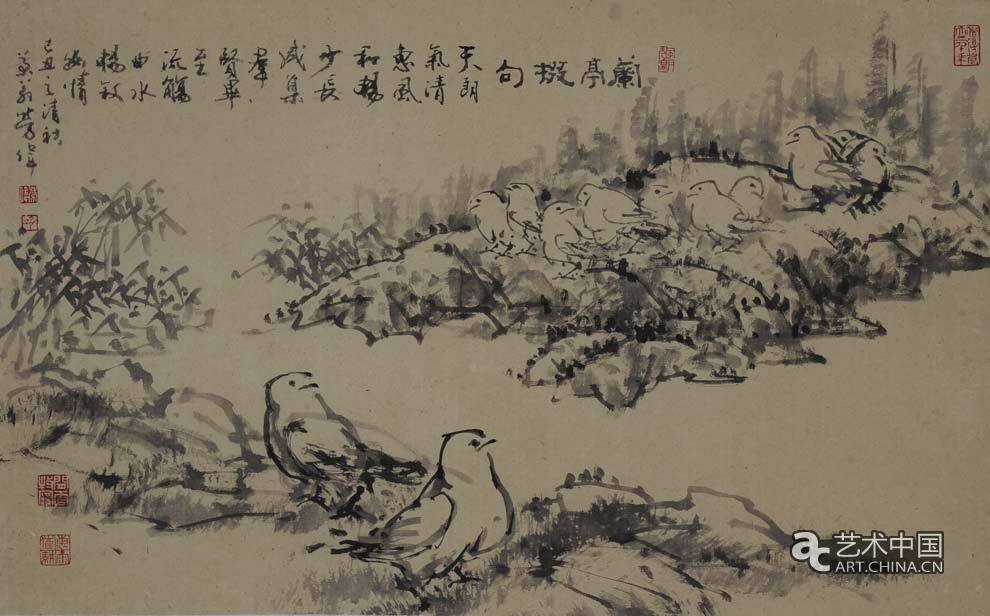 蘭亭掇句
天朗
氣清
惠風
和暢
少長
咸集
羣
賢畢
至
流觴
曲水
暢敘
幽情
己丑之清秋
艺术中国
ART.CHINA.CN